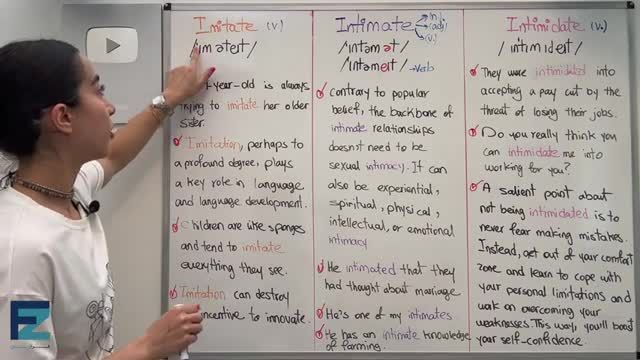 Imitate (v.)
/ˈɪməteɪt/
-year-old is always
trying to imitate her older
sister.
Imitation, perhaps to
a profound degree, plays
a key role in language
and language development.
Children are like sponges
and tend to imitate
everything they see.
Imitation can destroy
incentive to innovate.
Intimate (n.)
(adj)
(v.)
/ˈɪntəmət/
/ˈɪntəmeɪt/ → verb
Contrary to popular
belief, the backbone of
intimate relationships
doesn't need to be
sexual intimacy. It can
also be experiential,
spiritual, physical,
intellectual, or emotional
intimacy
He intimated that they
had thought about marriage
He's one of my intimates
He has an intimate knowledge
of farming.
Intimidate (v.)
/ɪnˈtɪmɪdeɪt/
They were intimidated into
accepting a pay cut by the
threat of losing their jobs.
Do you really think you
can intimidate me into
working for you?
A salient point about
not being intimidated is to
never fear making mistakes.
Instead, get out of your comfort
zone and learn to cope with
your personal limitations and
work on overcoming your
weaknesses. This way, you'll boost
your self-confidence.
EZ